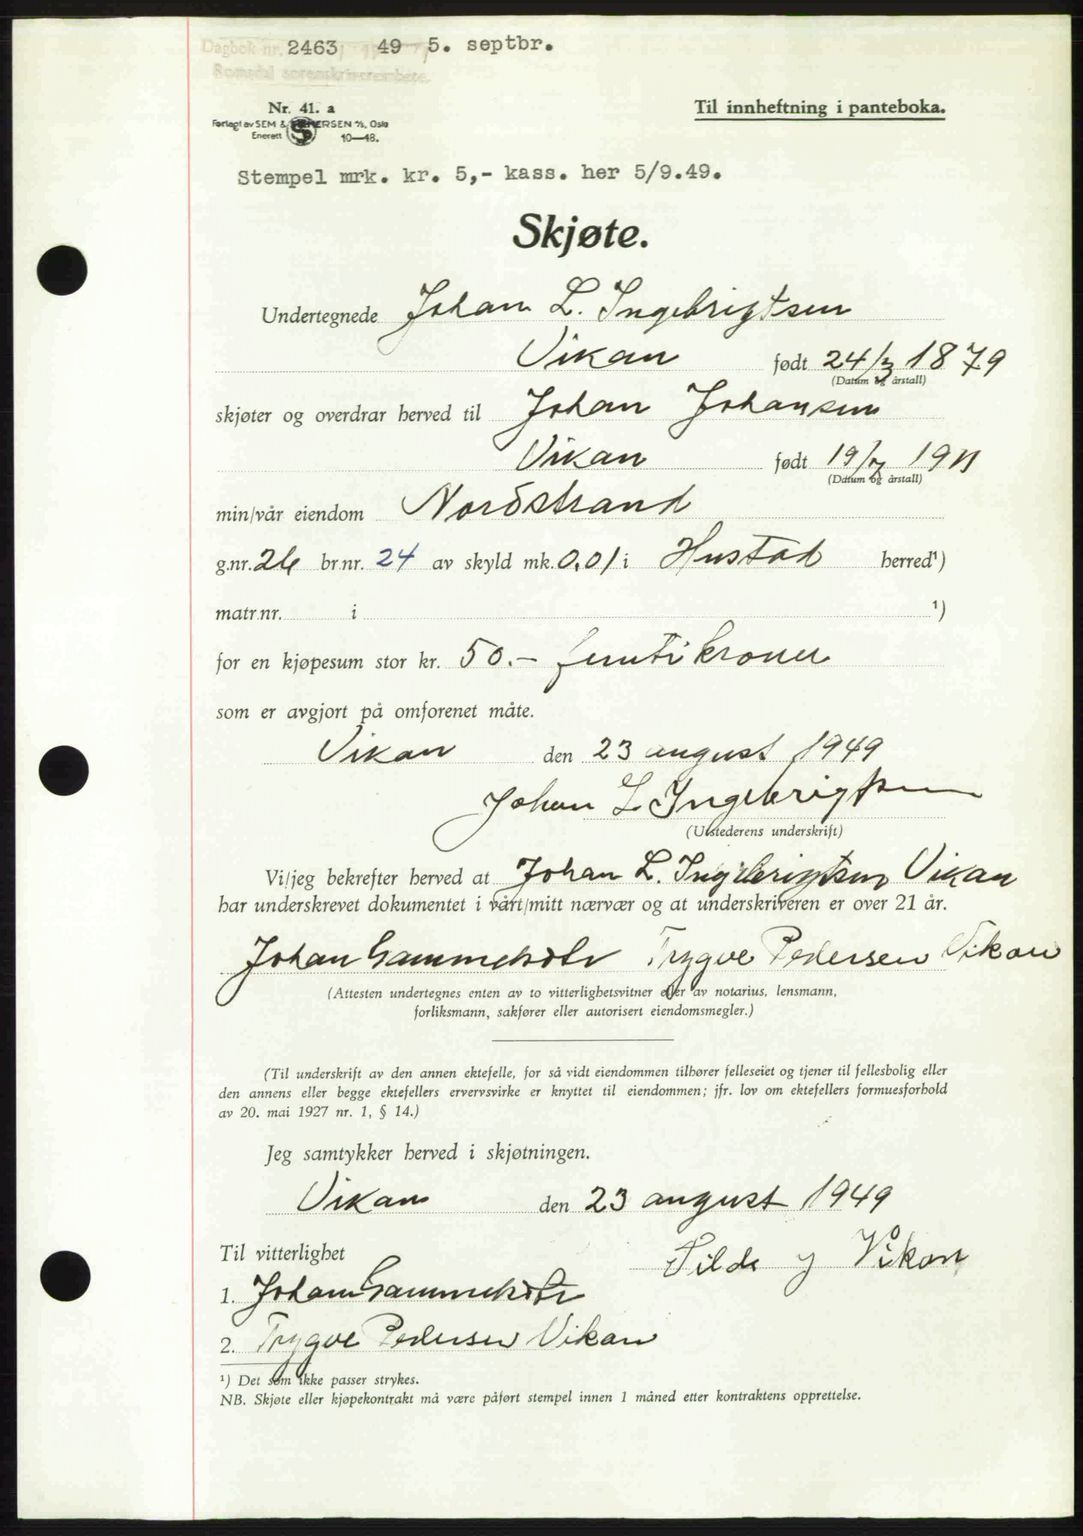 Dagbok nr. 2463 49 5. septbr.
Romsdal sorenskriverembete.
Nr. 41. a
Forlagt av SEM & STENERSEN A/S, Oslo
Enerett 10—48.
Til innheftning i panteboka.
Stempel mrk. kr. 5,- kass. her 5/9.49.
Skjøte.
Undertegnede Johan L. Ingebrigtsen
Vikan født 24/3 1879
(Datum og årstall)
skjøter og overdrar herved til Johan Johansen
Vikan født 19/7 1911
(Datum og årstall)
min/vår eiendom Nordstrand
g.nr. 26 br.nr. 24 av skyld mk. 0,01 i Hustad herred¹)
matr.nr. i ¹)
for en kjøpesum stor kr. 50.- femti kroner
som er avgjort på omforenet måte.
Vikan den 23 august 1949
Johan L Ingebrigtsen
(Utstederens underskrift)
Vi/jeg bekrefter herved at Johan L. Ingebrigtsen Vikan
har underskrevet dokumentet i vårt/mitt nærvær og at underskriveren er over 21 år.
Johan Trygve Pedersen Vikan
(Attesten undertegnes enten av to vitterlighetsvitner eller av notarius, lensmann,
forliksmann, sakfører eller autorisert eiendomsmegler.)
(Til underskrift av den annen ektefelle, for så vidt eiendommen tilhører felleseiet og tjener til fellesbolig eller
den annens eller begge ektefellers ervervsvirke er knyttet til eiendommen; jfr. lov om ektefellers formuesforhold
av 20. mai 1927 nr. 1, § 14.)
Jeg samtykker herved i skjøtningen.
Vikan den 23 august 1949
Til vitterlighet
Vikan
1. Johan
2. Trygve Pedersen Vikan
¹) Det som ikke passer strykes.
NB. Skjøte eller kjøpekontrakt må være påført stempel innen 1 måned etter kontraktens opprettelse.